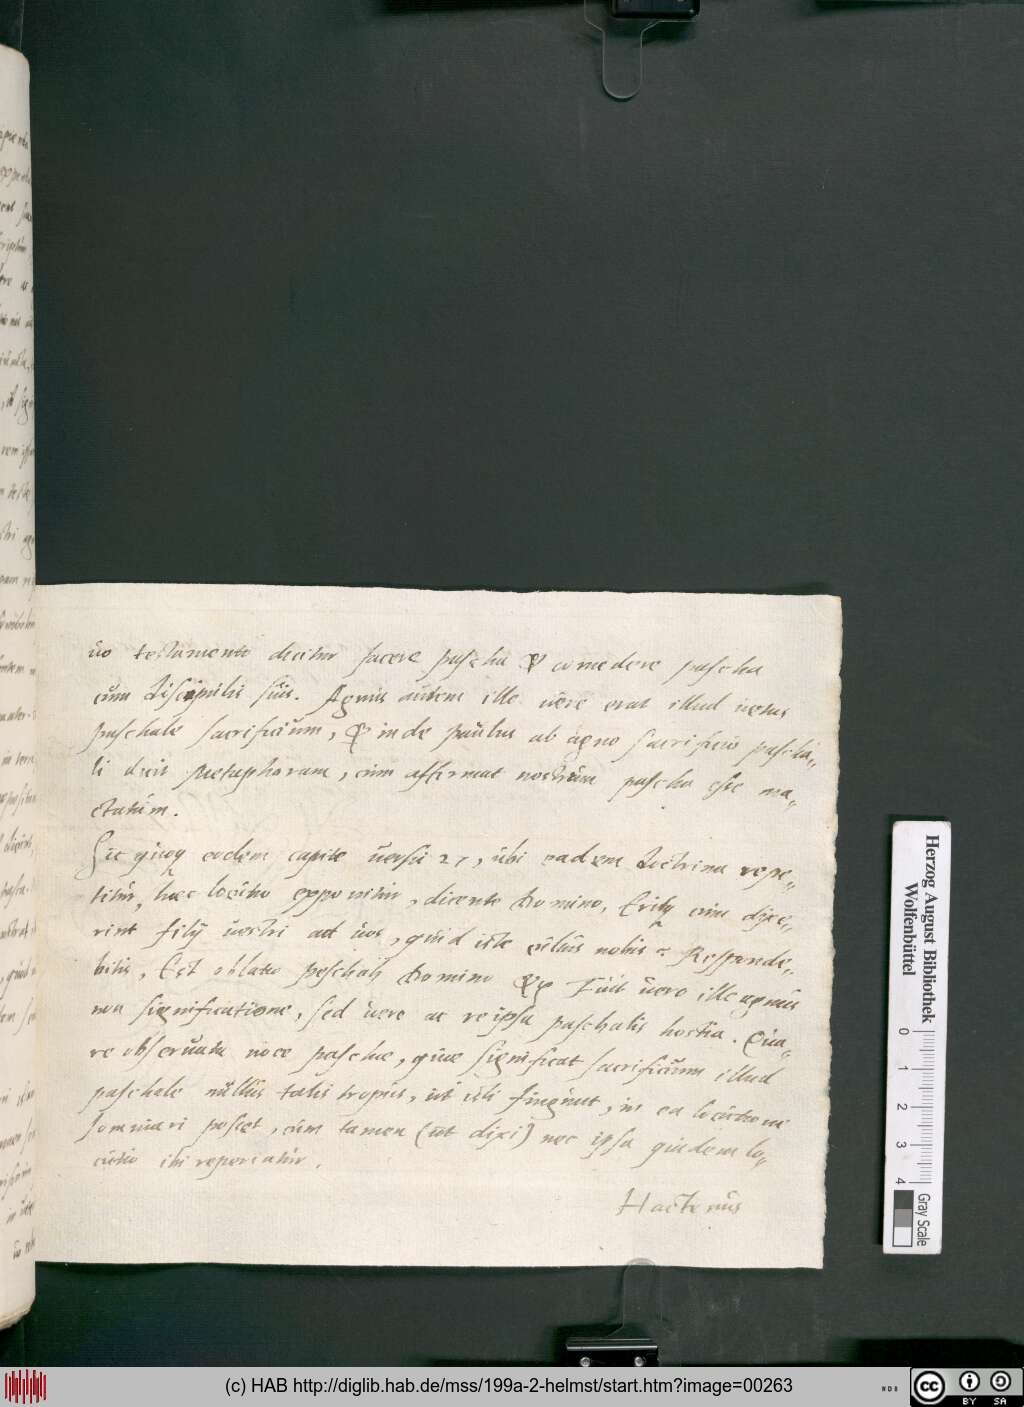 ũo testamento dicitur facere pascha & comedere pascha
cũm discipulis sũis. Agnus aũtem ille uere erat illud uetus
paschale sacrificiũm, & inde paũlus ab agno sacrificio pascha„
li dicit Metaphoram, cũm affirmat nostrũm pascha esse ma„
ctatũm.
Sic quoq eodem capite ũersu 27, ũbi eadem doctrina repe„
titũr, haec locũtio opponitũr, dicente Domino, Eritq cũm dixe„
rint filij ũestri ad ũos, qũid iste cũltũs nobis? Responde„
bitis, Est oblatio peschah Domino &c Fũit ũero ille agnũs
non significatione, sed ũere ac reipsa paschalis hostia. Qũa„
re obserũata ũoce paschae, qũae significat sacrificiũm illud
paschale nũllũs talis tropũs, ũt isti fingũnt, in ea locũtione
somniari posset, cũm tamen (ũt dixi) nec ipsa quidem lo„
cũtio ibi reperiatũr.
Hactenũs
Herzog August Bibliothek
Wolfenbüttel
0 1 2 3 4
Gray Scale
(c) HAB http://diglib.hab.de/mss/199a-2-helmst/start.htm?image=00263
cc BY SA